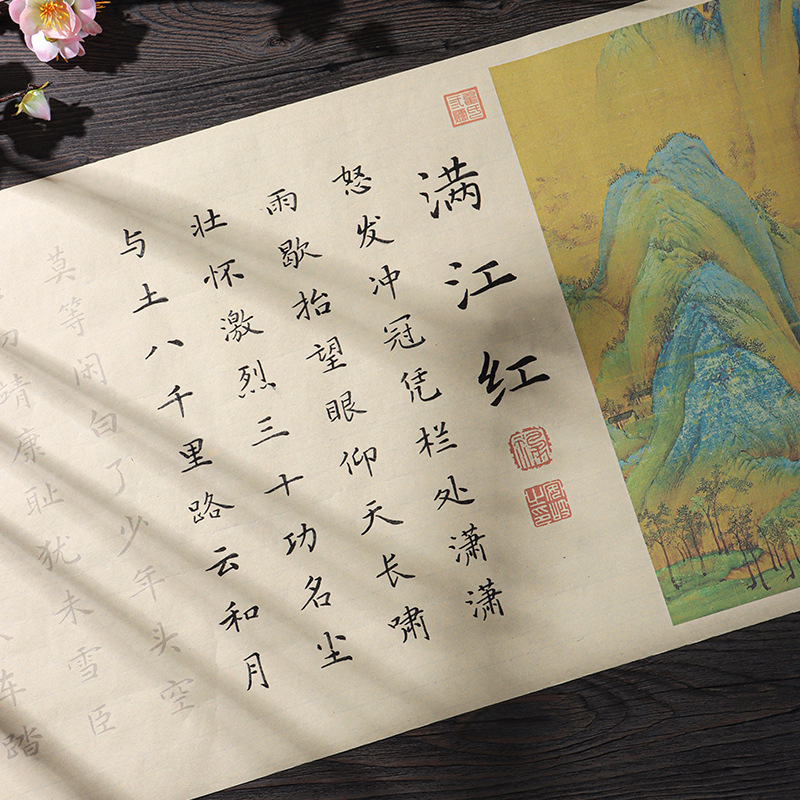 满江红
怒发冲冠凭栏处潇潇
雨歇抬望眼仰天长啸
壮怀激烈三十功名尘
与土八千里路云和月
莫等闲白了少年头空
切靖康耻犹未雪臣
车踏